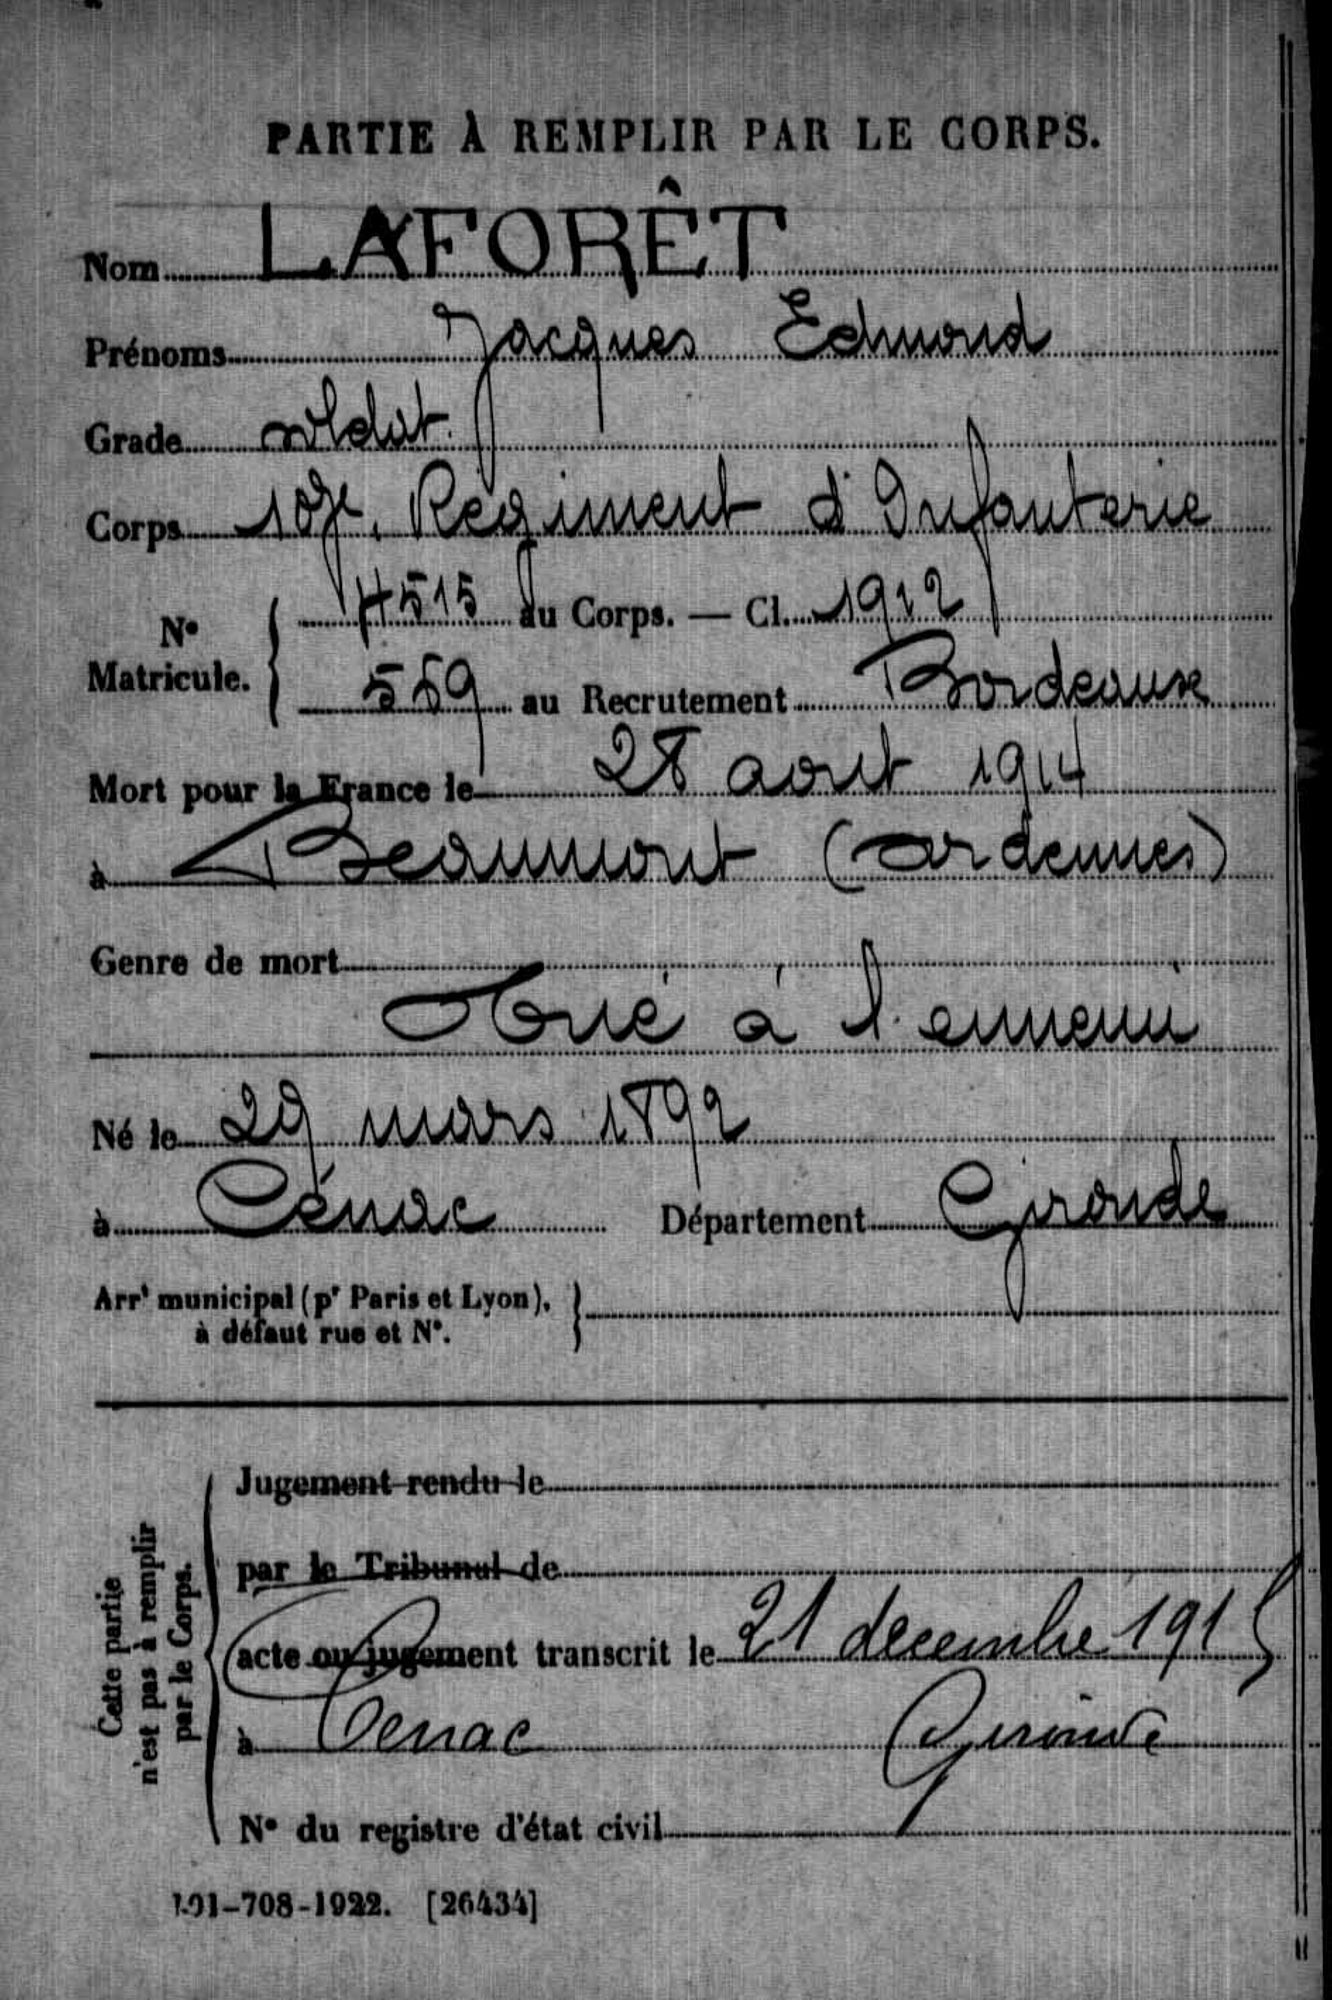 PARTIE À REMPLIR PAR LE CORPS.
Nom LAFORÊT
Prénoms Jacques Edmond
Grade soldat.
Corps 107e. Régiment d'Infanterie
N° Matricule. { 4515 au Corps. — Cl. 1912
559 au Recrutement Bordeaux
Mort pour la France le 28 aout 1914
à Beaumont (ardennes)
Genre de mort
Tué à l'ennemi
Né le 29 mars 1892
à Cénac Département Gironde
Arrt municipal (pr Paris et Lyon), }
à défaut rue et N°.
Cette partie
n'est pas à remplir
par le Corps.
Jugement rendu le
par le Tribunal de
acte ou jugement transcrit le 21 decembre 1915
à Cenac Gironde
N° du registre d'état civil
101-708-1922. [26434]